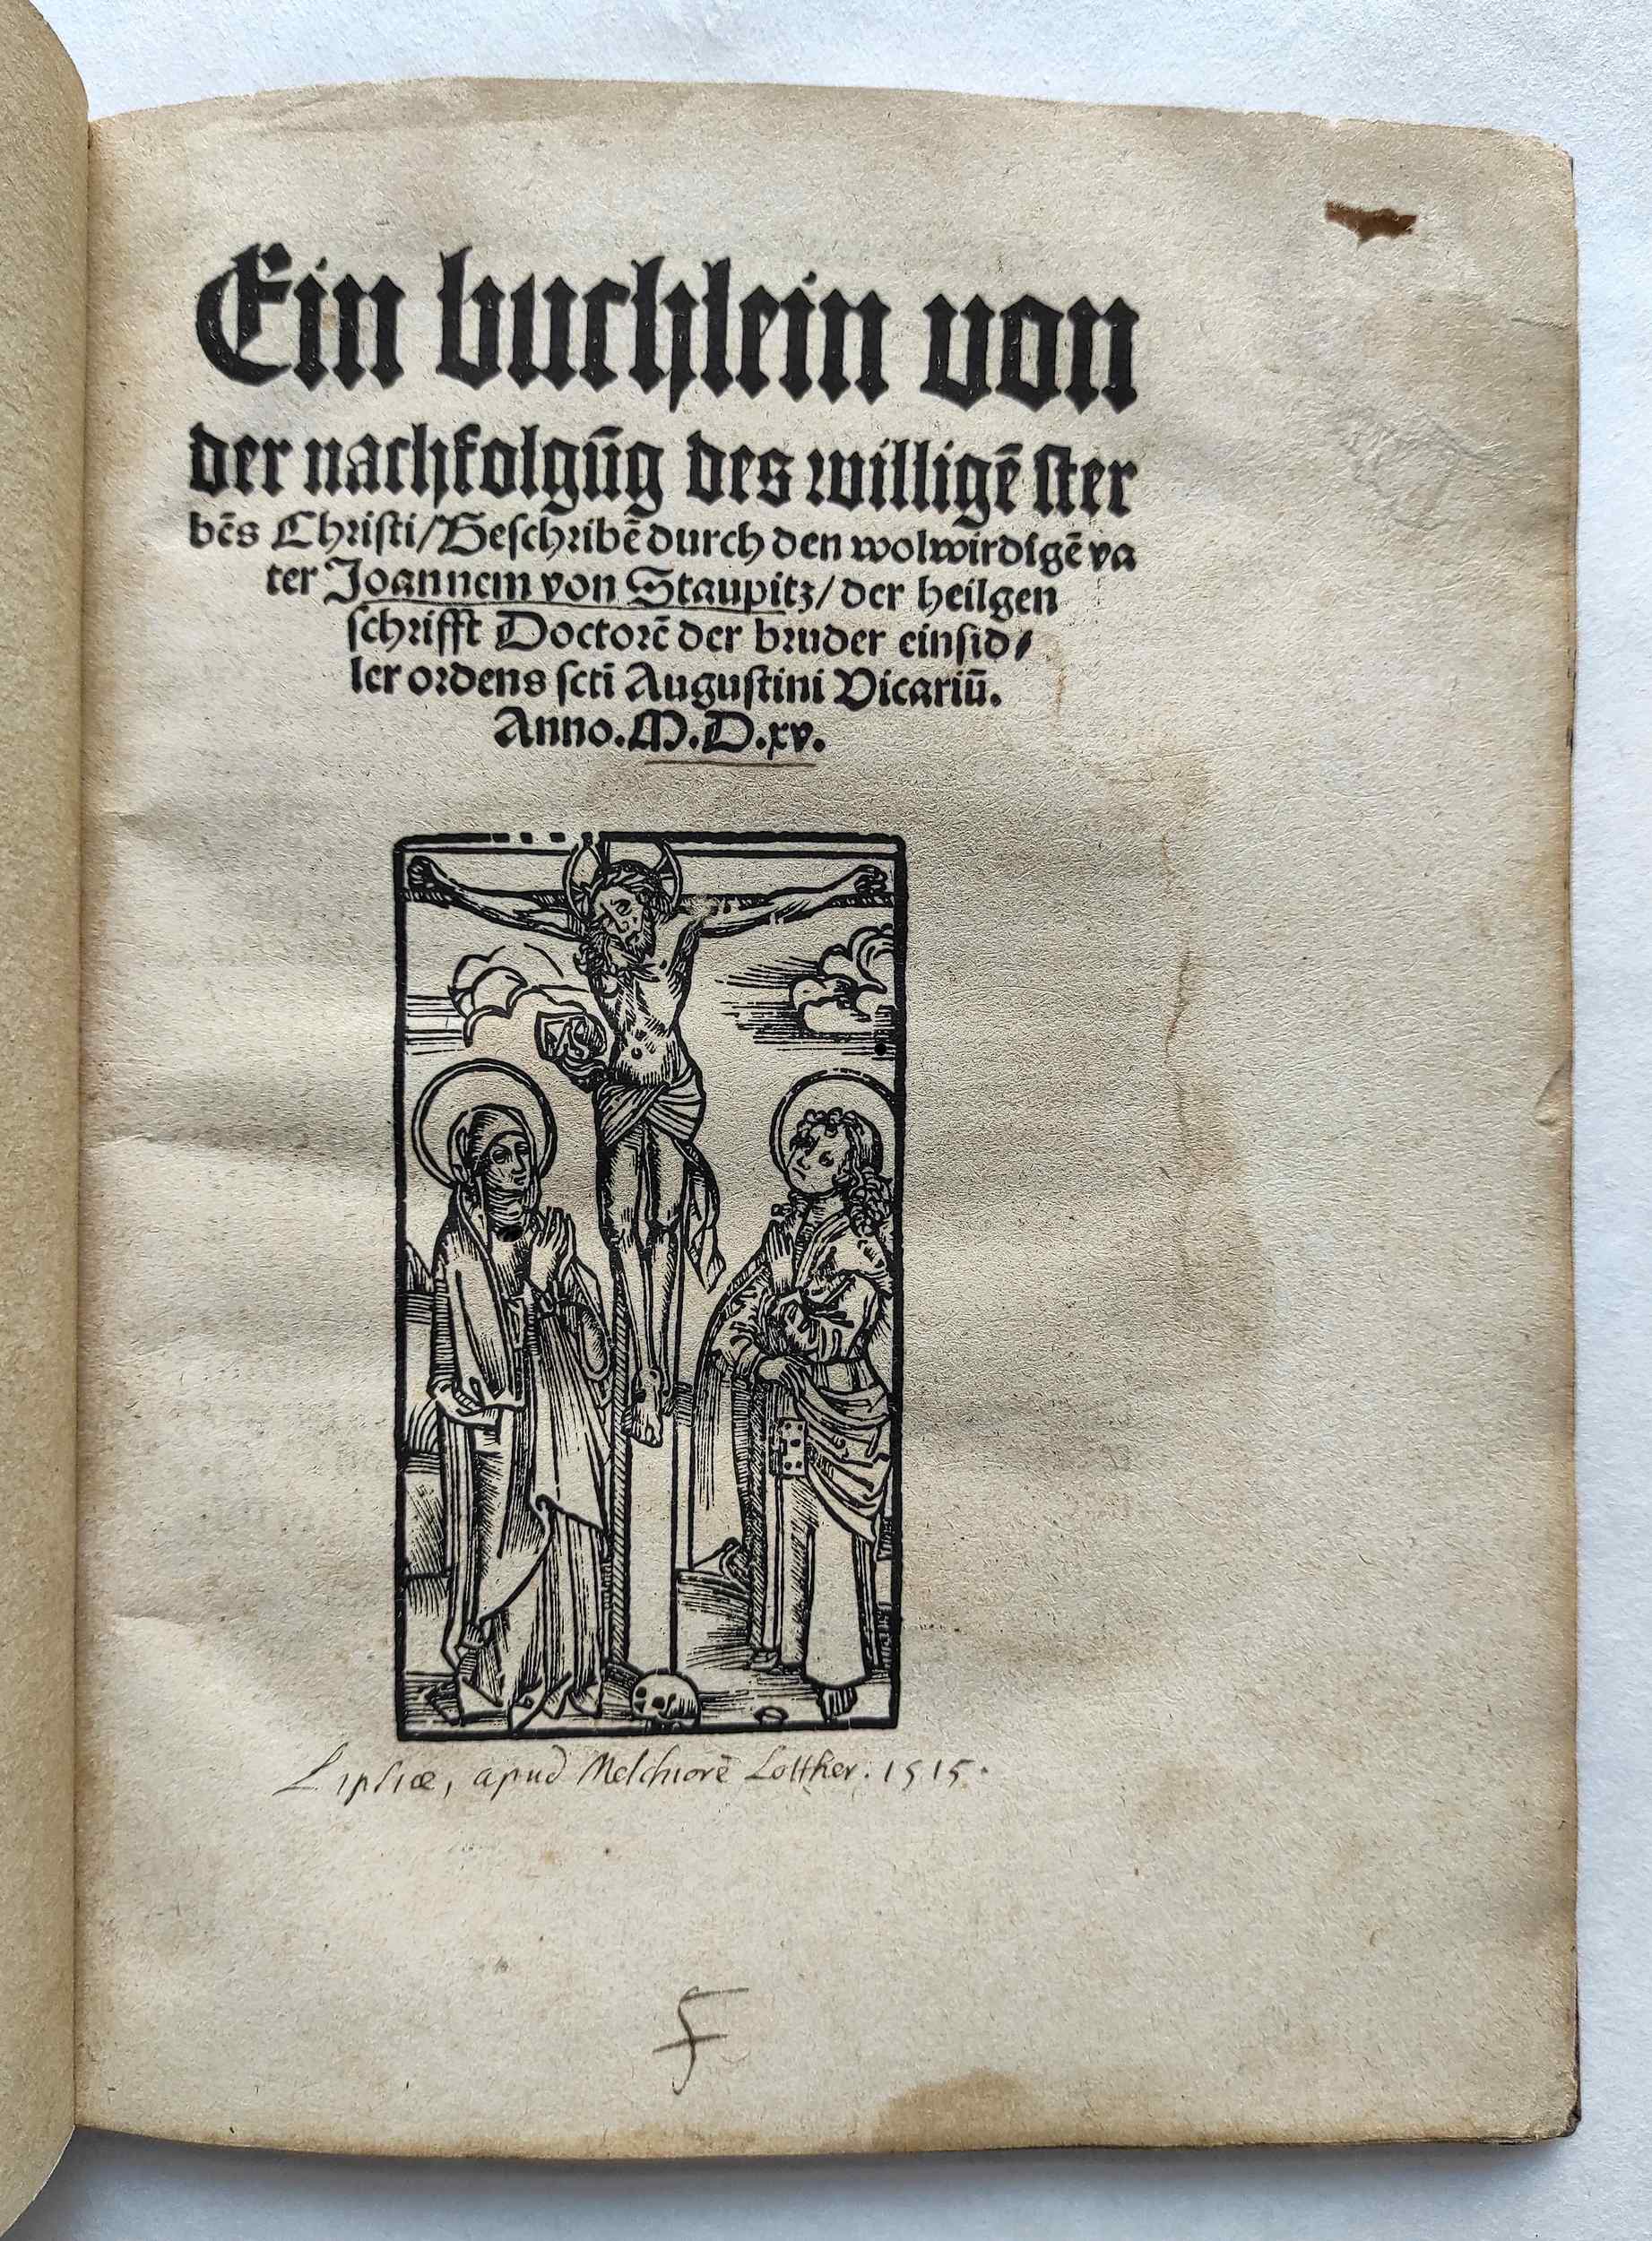 Ein buchlein von
der nachfolgūg des willigē ster
bēs Christi/Beschribē durch den wolwirdigē va
ter Joannem von Staupitz/der heilgen
schrifft Doctorē der bruder einsid/
ler ordens scti Augustini Vicariū.
Anno.M.D.xv.
Lipsiæ, apud Melchiorē Lotther. 1515.